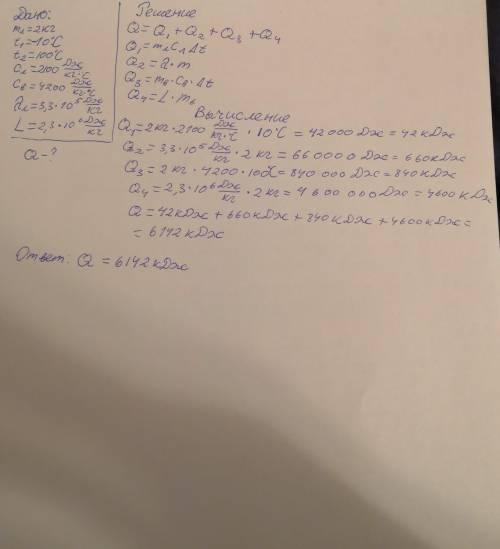 Дано:
m₁=2кг
t₁=-10℃
t₂=100℃
Cл=2100 Дж/кг·℃
Cв=4200 Дж/кг·℃
λл=3,3·10⁵ Дж/кг
L=2,3·10⁶ Дж/кг
Q-?
Решение
Q=Q₁+Q₂+Q₃+Q₄
Q₁=mлCлΔt
Q₂=λ·m
Q₃=mв·Cв·Δt
Q₄=L·mв
Вычисление
Q₁=2кг·2100 Дж/кг·℃·10℃=42000Дж=42кДж
Q₂=3,3·10⁵ Дж/кг·2кг=660000Дж=660кДж
Q₃=2кг·4200·100℃=840000Дж=840кДж
Q₄=2,3·10⁶ Дж/кг·2кг=4600000Дж=4600кДж
Q=42кДж+660кДж+840кДж+4600кДж=
=6142кДж
Ответ: Q=6142кДж